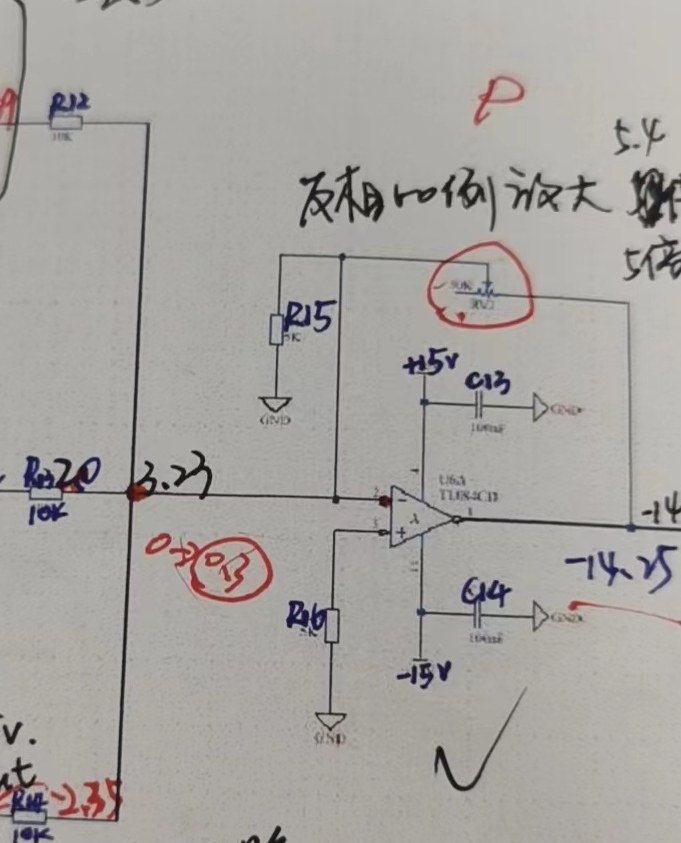 R12
10K
P
5.4
反相比例放大
5倍
R15
5K
GND
50K
RV2
+15V
C13
100nF
GND
R13
2.0
10K
3.23
U6A
TL084CD
2
3
1
4
11
-14
-14.25
0.3
R16
C14
100nF
GND
-15V
GND
V.
R14
-2.35
10K